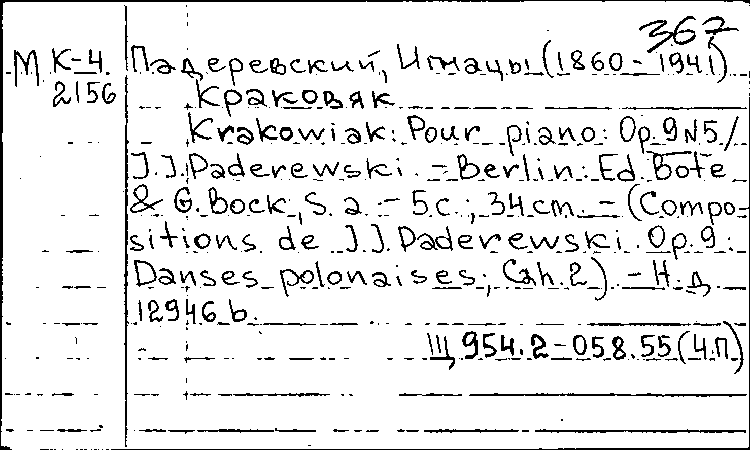 367
М К-4. Падеревский, Игнацы (1860-1941)
2156 Краковяк
Krakowiak: Pour piano: Op.9 N5/
J.J.Paderewski. - Berlin: Ed. Bote
& G.Bock, S. a. - 5 с.; 34 cm. - (Compo-
sitions de J.J.Paderewski. Op.9:
Danses polonaises; Cah.2) - Н.д.
12946 b.
Щ 954.2-058.55(4П)